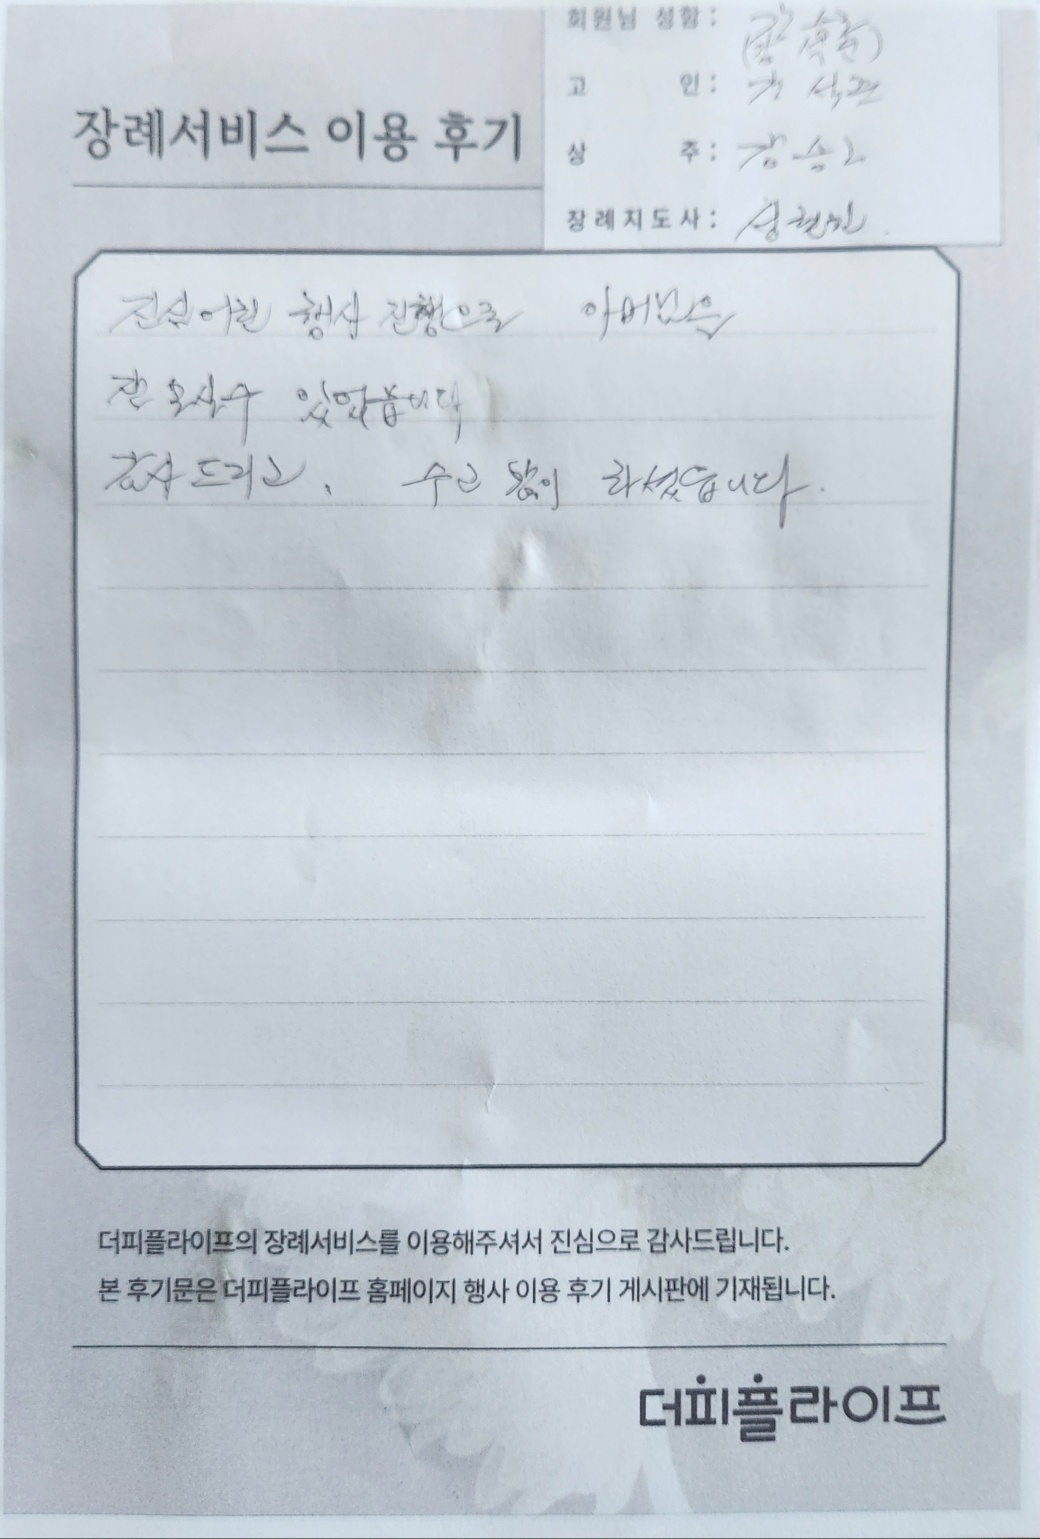 회원님 성함:
고 인:
장례서비스 이용 후기
상 주: 강승고
장례지도사:
진심어린 행사 진행으로 아버님을
잘 모실수 있었습니다
감사드리고, 수고 많이 하셨습니다.
더피플라이프의 장례서비스를 이용해주셔서 진심으로 감사드립니다.
본 후기문은 더피플라이프 홈페이지 행사 이용 후기 게시판에 기재됩니다.
더피플라이프